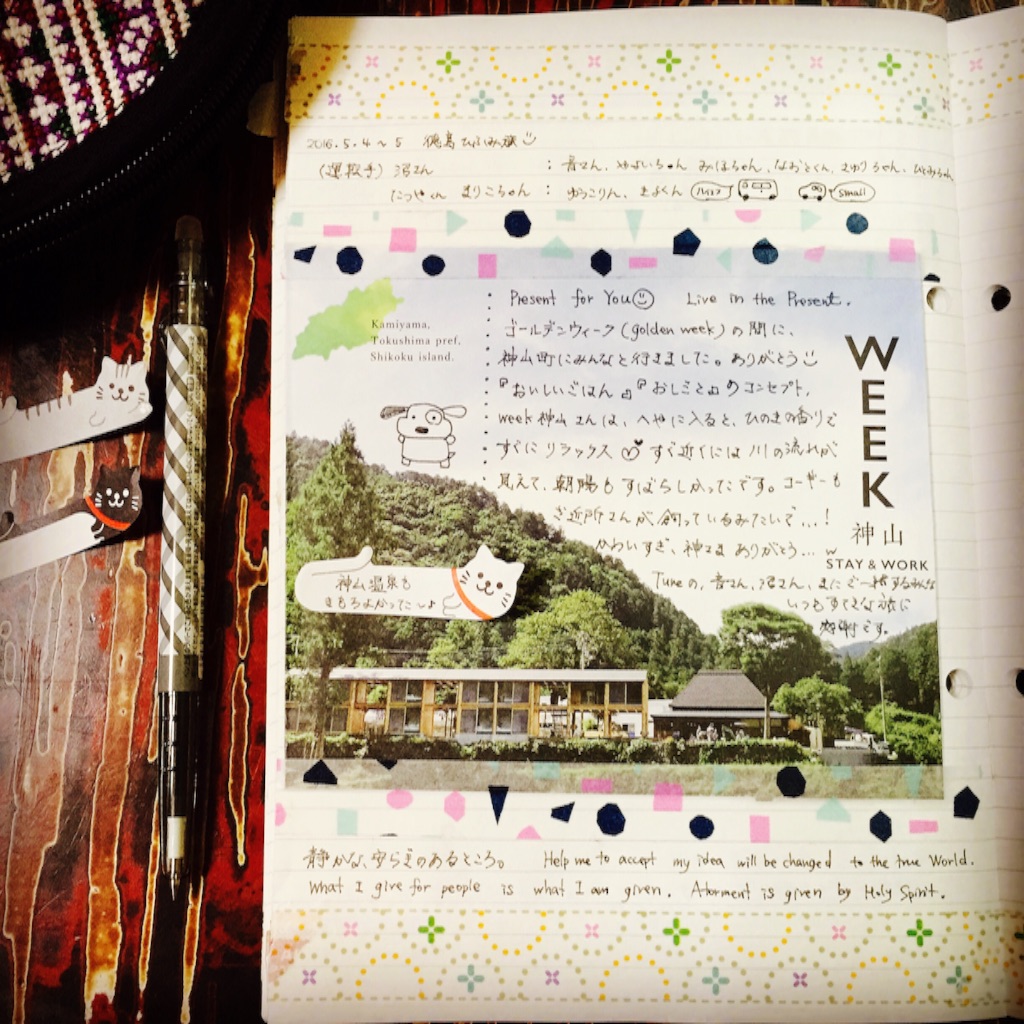 2016.5.4～5 徳島ひふみ旅
(運転手) 沼さん : 音さん、やよいちゃん みほちゃん、なおとくん、さゆりちゃん、ひとみちゃん
にっやん まりこちゃん : ゆうこりん、きよくん ハイエース small
Present for You Live in the Present.
Kamiyama,
Tokushima pref,
Shikoku island.
ゴールデンウィーク(golden week)の間に、
神山町にみんなと行きました。ありがとう
『おいしいごはん』『おしごと』のコンセプト、
week神山さんは、へやに入ると、ひのきの香りで
すぐにリラックス♡すぐ近くには川の流れが
見えて、朝陽もすばらしかったです。コーギーも
ご近所さんが飼っているみたいで…!
かわいすぎ、神さまありがとう…
Tuneの、音さん、沼さん、まにご一緒するみんな
いつもすてきな旅に
感謝です。
WEEK
神山
W
STAY & WORK
神山温泉も
きもちよかったでしょ
静かな、安らぎのあるところ。 Help me to accept my idea will be changed to the true World.
What I give for people is what I am given. Atorment is given by Holy Spirit.